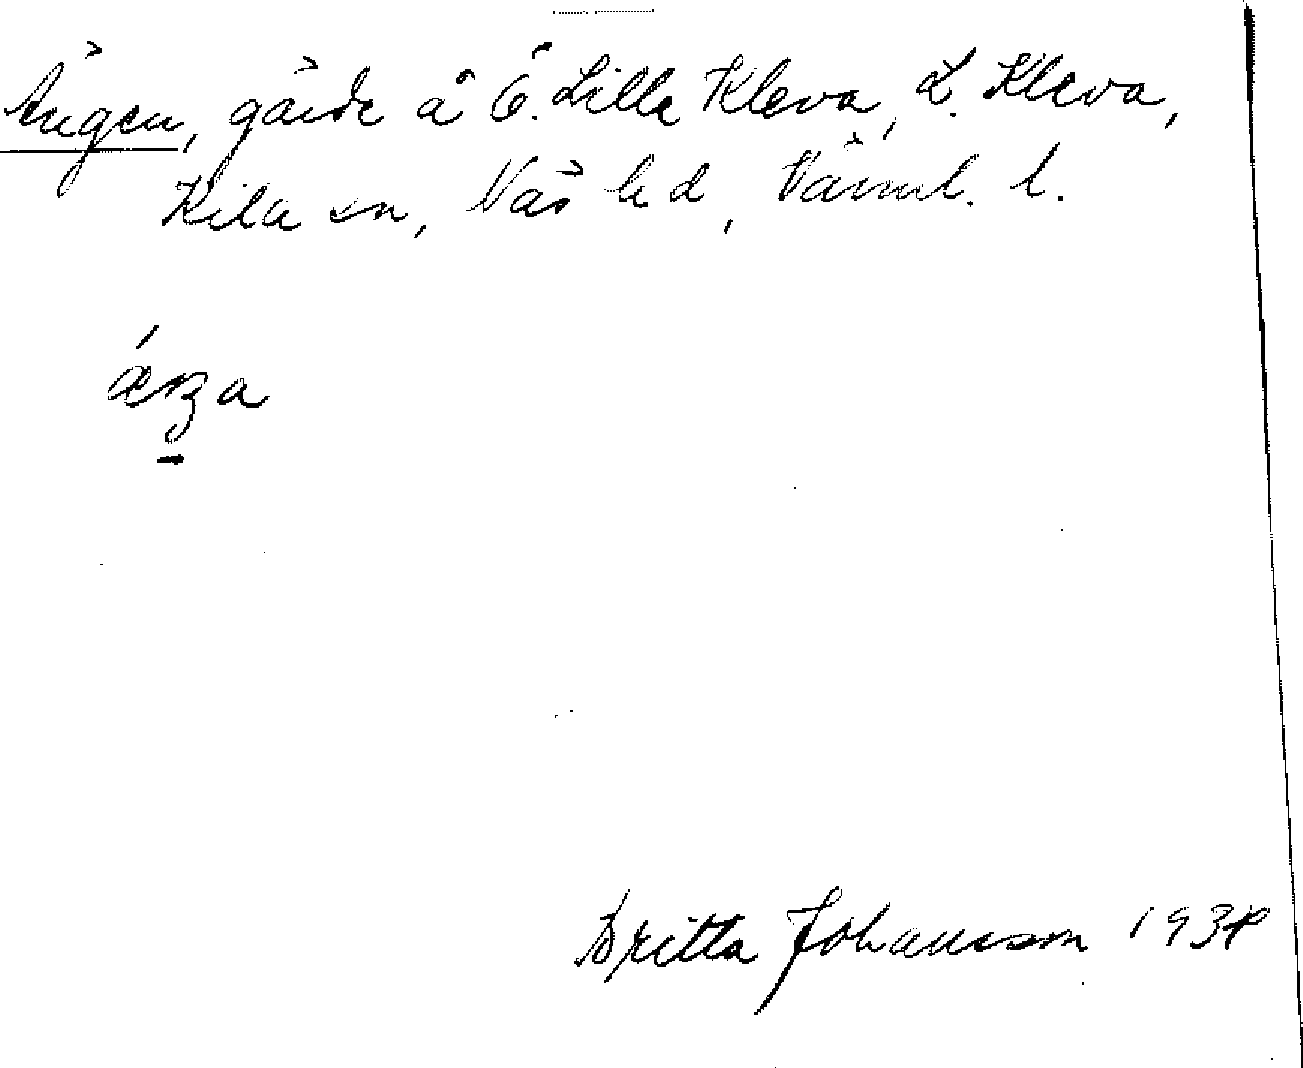 Ängen, gärde å Ö. Lilla Kleva, L. Kleva,
Kila sn, Näs hd, Värml. l.
Britta Johansson